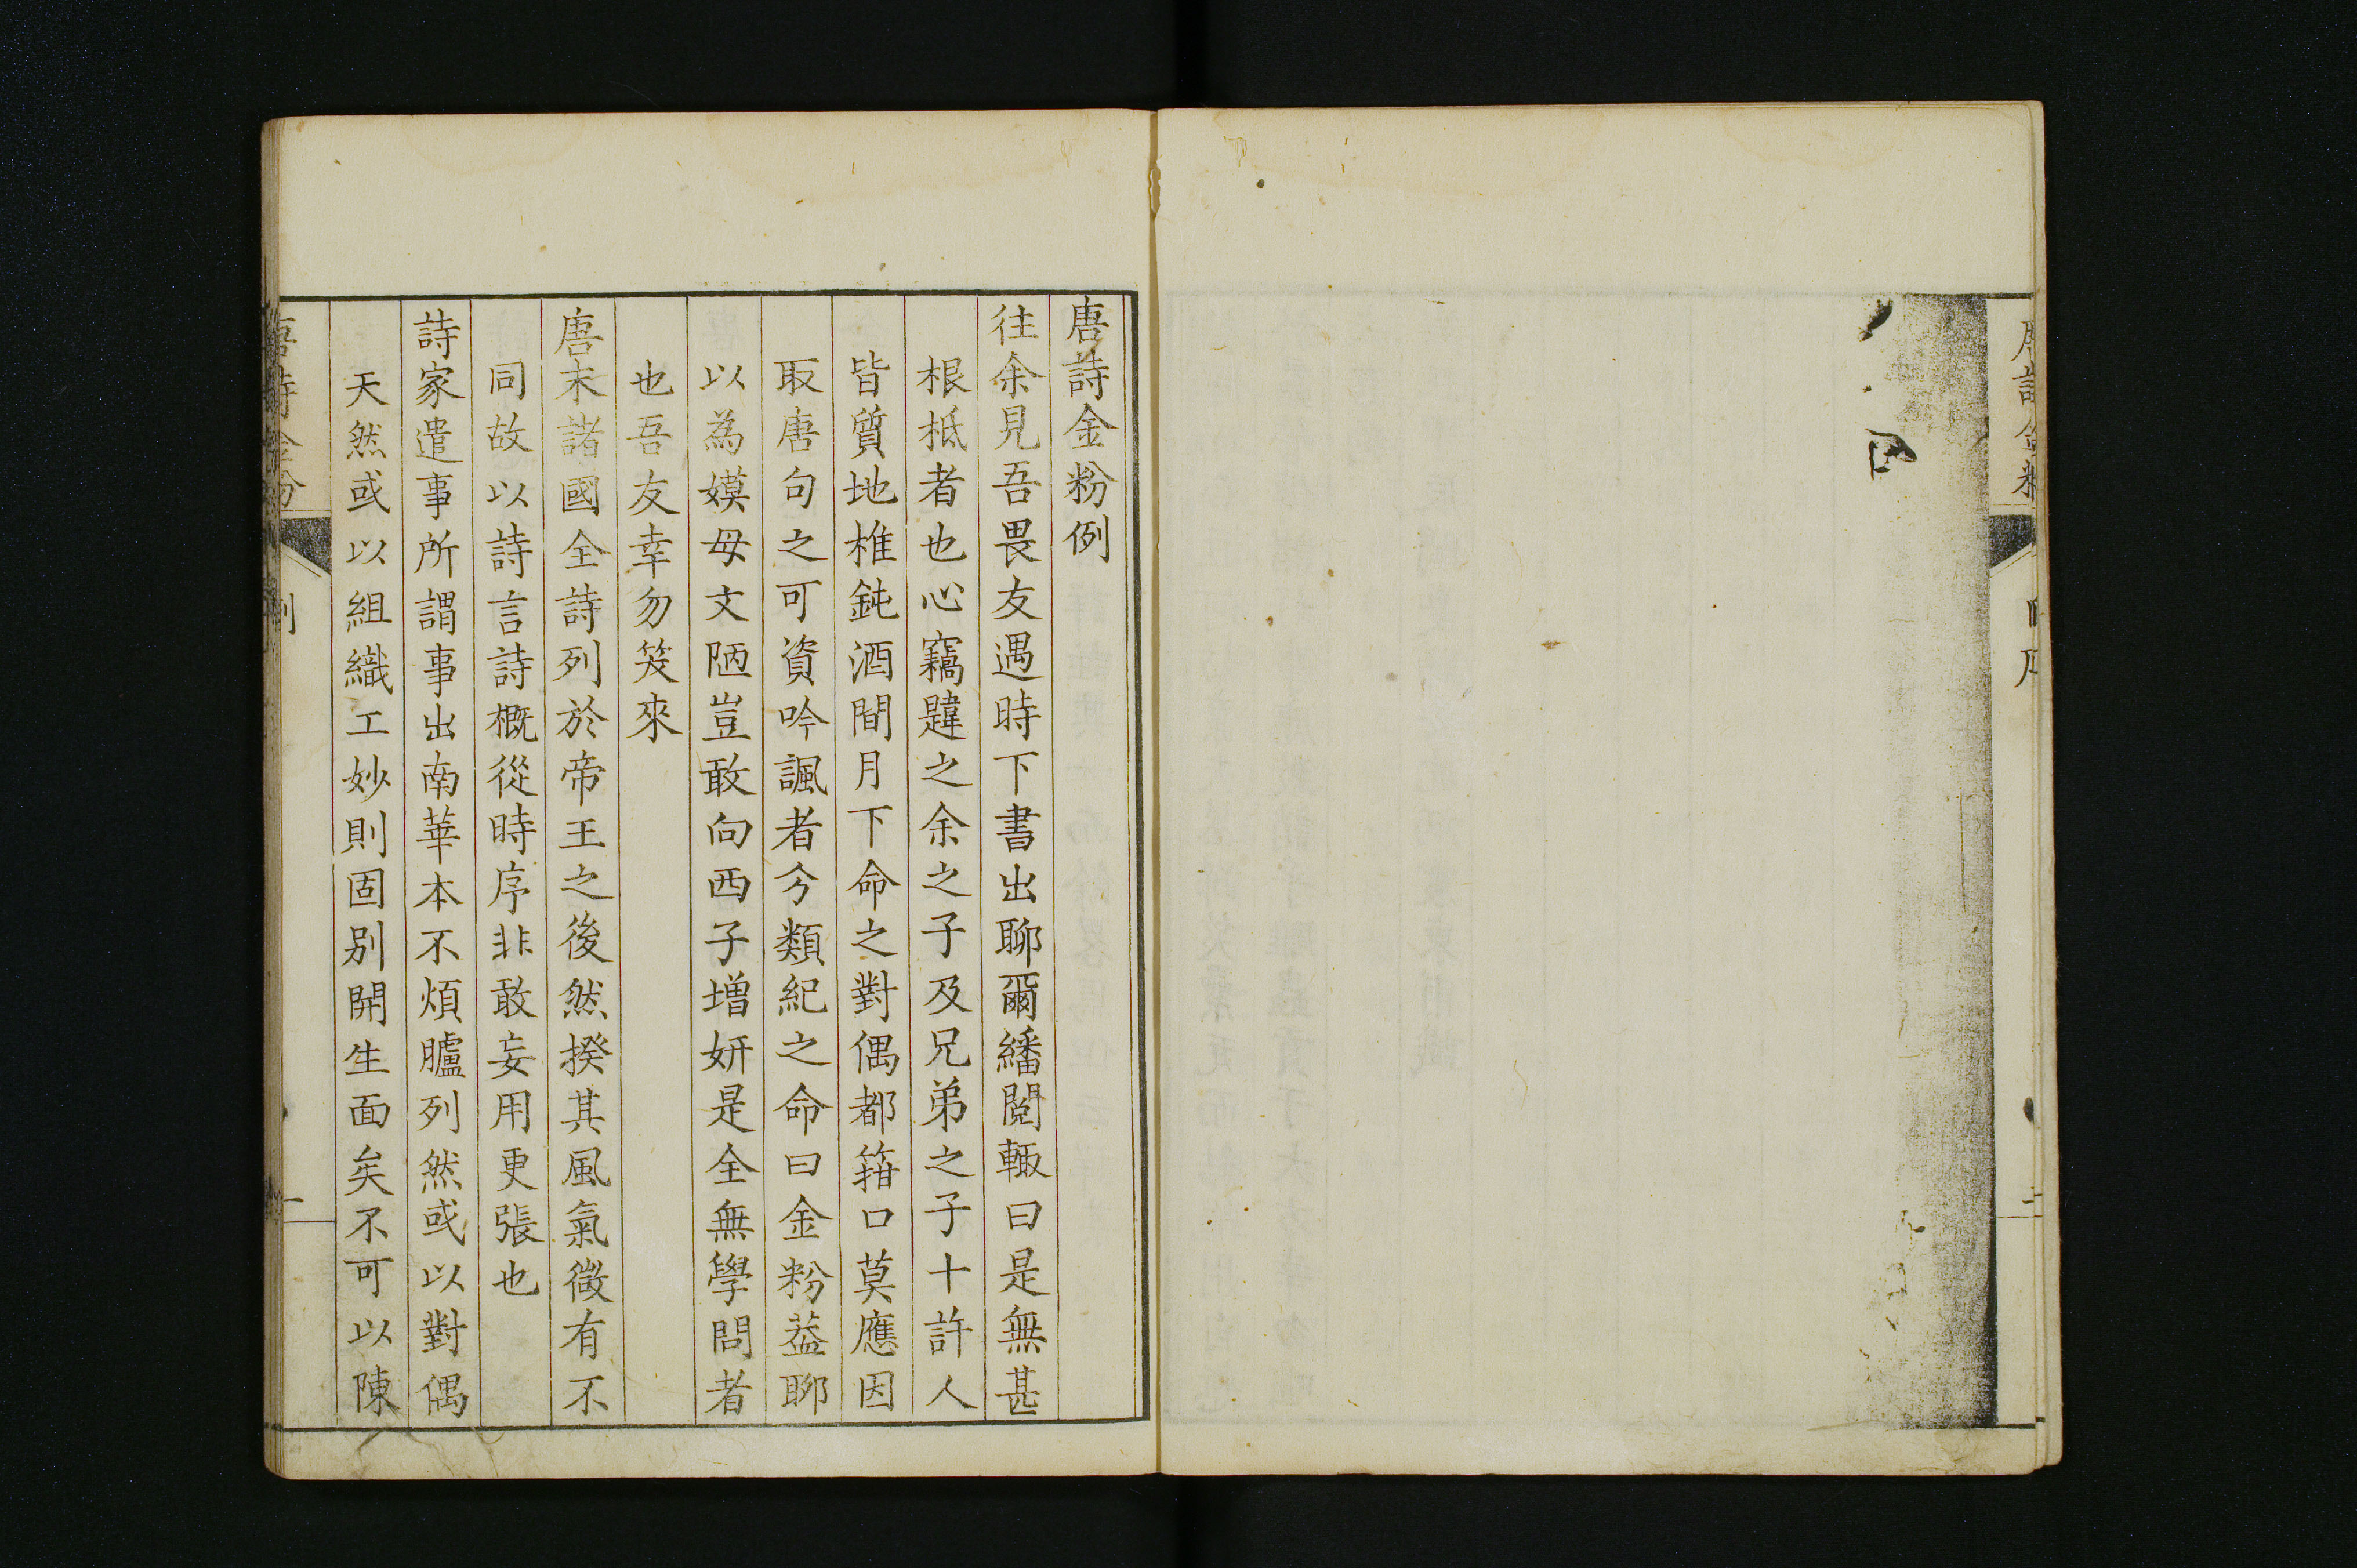 唐詩金粉例
往余見吾畏友遇時下書出聊爾繙閱輙曰是無甚
根柢者也心竊韙之余之子及兄弟之子十許人
皆質地椎鈍酒間月下命之對偶都箝口莫應因
取唐句之可資吟諷者今類紀之命曰金粉葢聊
以為嫫母文陋豈敢向西子增妍是全無學問者
也吾友幸勿笑來
唐末諸國全詩列於帝王之後然揆其風氣徵有不
同故以詩言詩概從時序非敢妄用更張也
詩家遣事所謂事出南華本不煩臚列然或以對偶
天然或以組織工妙則固別開生面矣不可以陳